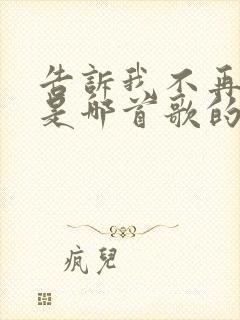 告訴我不再
是哪首歌的
疯兒